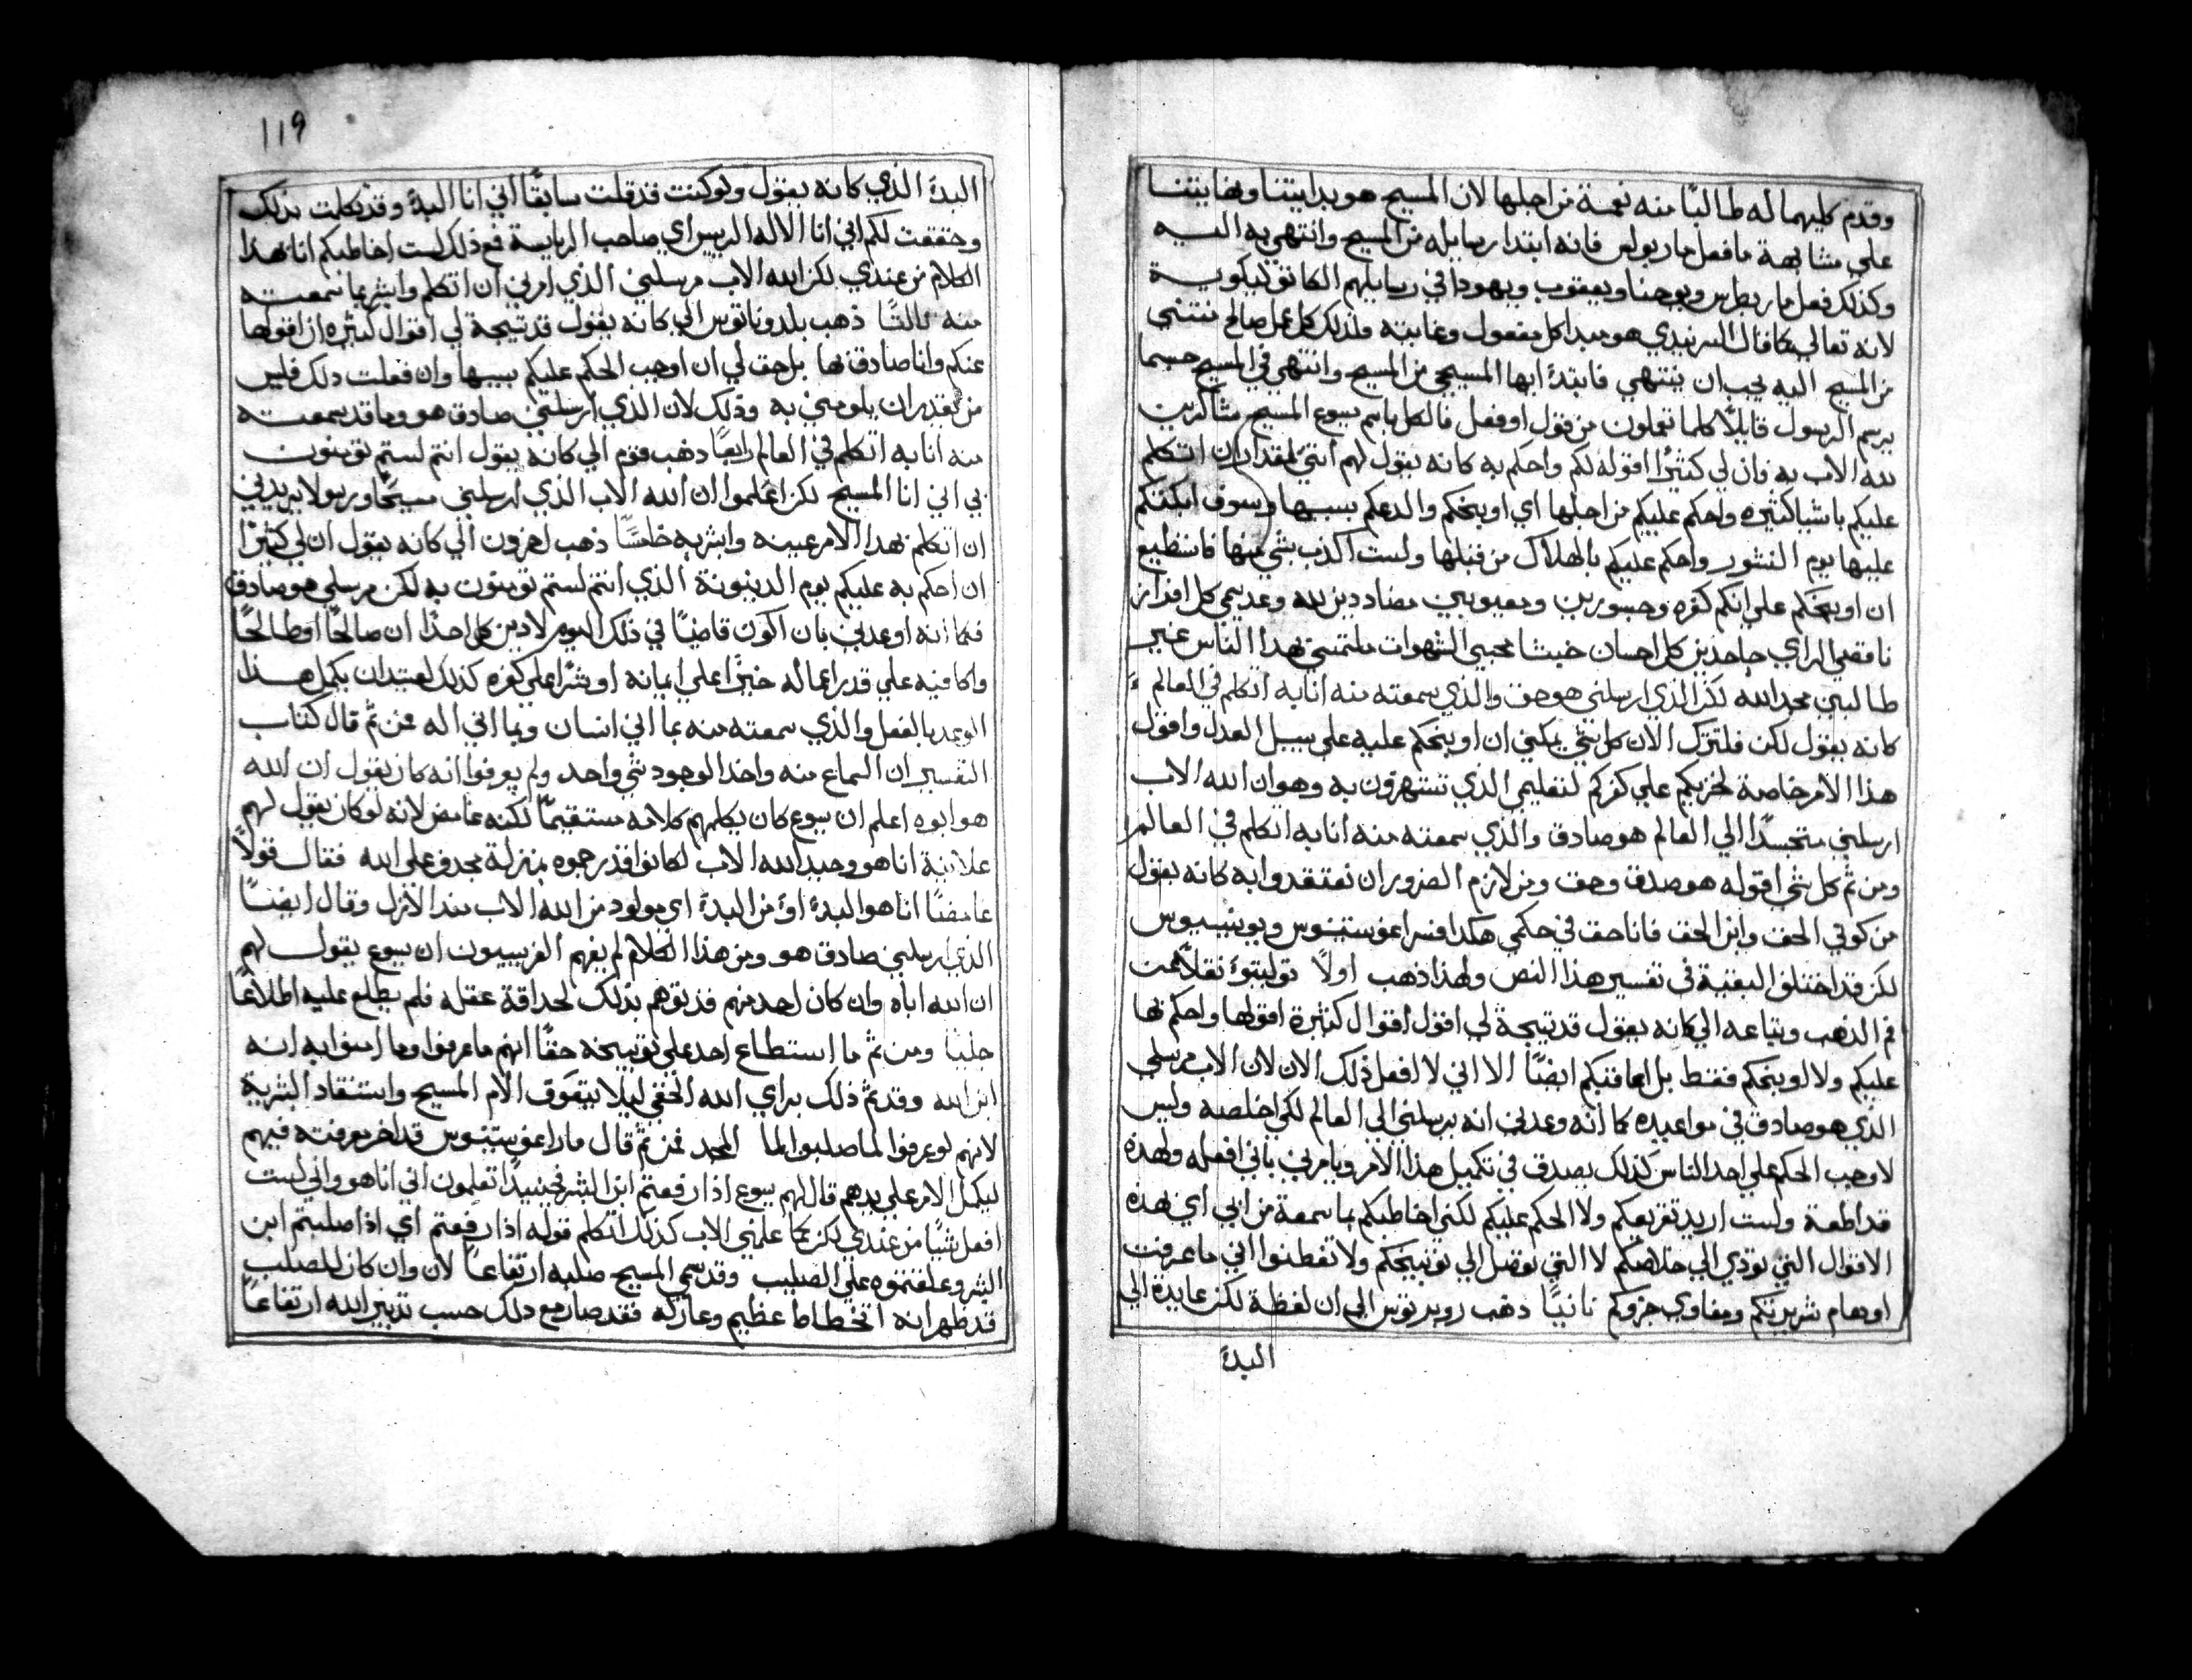 وقدم كليهما له طالبًا منه نعمة من اجلها لان المسيح هو بدايتنا ونهايتنا
علي مشابهة ما فعل مار بولس فانه ابتدا رسايله من المسيح وانتهي به اليه
وكذلك فعل مار بطرس ويوحنا ويعقوب ويهودا في رسايلهم الكاتوليكوية
لانه تعالي كما قال السرنيدي هو مبدا كل مفعول وغايته ولذلك كل عمل صالح
من المسيح اليه يجب ان ينتهي فابتدئ ايها المسيحي من المسيح وانتهي في المسيح حسبما
يرسم الرسول قايلاً كلما تعملون من قول او فعل فالكل باسم يسوع المسيح شاكرين
لله الاب به فان لي كثيرًا اقوله لكم واحكم به كانه يقول لهم انني لمقتدر ان اتكلم
عليكم باشيا كثيره واحكم عليكم من اجلها اي اوبخكم والدعكم بسببها وسوف ابكتكم
عليها يوم النشور واحكم عليكم بالهلاك من قبلها ولست اكذب بشي منها فاستطيع
ان اوبخكم علي انكم كفره وحسورين ومعيوبين مضاددين لله وعديمي كل اقرار
ناقصي الراي جاحدين كل احسان خبثا محبي الشهوات ملتمسي بهدا الناس غير
طالبين مجد الله لكن الذي ارسلني هو حق والذي سمعته منه انا به اتكلم في العالم
كانه يقول لكن فلنترك الان كل شي يمكنني ان اوبخكم عليه علي سبيل العدل واقول
هذا الامر خاصة لخزيكم علي كفركم لتعليمي الذي تستهزون به وهو ان الله الاب
ارسلني متجسدًا الي العالم هو صادق والذي سمعته منه انا به اتكلم في العالم
ومن ثم كل شي اقوله هو صدق وحق ومن لازم الضرور ان تعتقدوا به كانه يقول
من كوني الحق وابن الحق فانا حق في حكمي هكدا فسر اغوستينوس ويوبينيوس
لكن قد اختلف البقية في تفسير هذا النص ولهذا ذهب اولاً توليتوء نقلاً عن
فم الذهب وتباعه الي كانه يقول قد تيجة لي اقول اقوال كثيرة اقولها واحكم بها
عليكم ولا اوبخكم فقط بل اعاقبكم ايضًا الا اني لا افعل ذلك الان لان الاب مرسلي
الذي هو صادق في مواعيده كما انه وعدني انه يرسلني الي العالم لكي اخلصه وليس
لاوجب الحكم علي احد الناس كذلك يصدق في تكميل هذا الامر ويامرني باني افعله ولهذه
قد اطعة ولست اريد تقريعكم ولا الحكم عليكم لكني اخاطبكم بما سمعة من ابي اي بهذه
الاقوال التي تودي الي خلاصكم لا التي توصل الي توبيخكم ولا تفطنوا اني ما عرفت
اوهام شريرتكم ومفاوي جزوكم ثانيًا ذهب روبرتوس الي ان لفظة لكن عايدة الي
البدئ
119
البدئ الذي كانه يقول ولو كنت قد قلت سابقًا اني انا البدئ وقد تكلمت بذلك
وحققت لكم اني انا الاله الرييس اي صاحب الرياسة فمع ذلك لست اخاطبكم انا بهذا
الكلام من عندي لكن الله الاب مرسلني الذي امرني ان اتكلم وابشر بما سمعته
منه ثالثًا ذهب بلدوناتوس الي كانه يقول قد تيجة لي اقوال كثيره ان اقولها
عنكم وانا صادق بها بل حق لي ان اوجب الحكم عليكم بسببها وان فعلت دلك فليس
من يقدر ان يلومني به وذلك لان الذي ارسلني صادق هو وما قد سمعته
منه انا به اتكلم في العالم رابعًا ذهب قوم الي كانه يقول انتم لستم تومنون
بي اني انا المسيح لكن اعلموا ان الله الاب الذي ارسلني مسيحًا ورسولا يريدني
ان اتكلم بهدا الامر عينه وابشر به خامسًا ذهب اخرون الي كانه يقول ان لي كثيرًا
ان احكم به عليكم يوم الدينونة الذي انتم لستم تومنون به لكن مرسلي هو صادق
فكما انه اوعدني بان اكون قاضيًا في ذلك اليوم لادين كل احدًا ان صالحًا او طالحًا
واكافيه علي قدر اعماله خيرًا علي ايمانه او شرًا علي كفره كذلك لعتيد ان يكمل هذا
الوعد بالفعل والذي سمعته منه بما اني انسان وبما اني اله فمن ثم قال كتاب
التفسير ان السماع منه واخد الوجود شي واحد ولم يعرفوا انه كان يقول ان الله
هو ابوه اعلم ان يسوع كان يكلمهم كلامه مستقيمًا لكنه غامض لانه لو كان يقول لهم
علانية انا هو وحيد الله الاب لكانوا قد رجموه بمنزلة مجدف علي الله فقال قولاً
غامضًا انا هو البدئ او من البدئ اي مولود من الله الاب منذ الازل وقال ايضًا
الذي ارسلني صادق هو ومن هذا الكلام لم يفهم الفريسيون ان يسوع يقول لهم
ان الله اباه وان كان احد منهم قد توهم بذلك لحداقة عقله فلم يطلع عليه اطلاعًا
جليًا ومن ثم ما استطاع احد علي توبيخه حقًا انهم ما عرفوا وما امنوا به انه
ابن الله وقد تم ذلك براي الله الخفي ليلا يتعوق الام المسيح واستنقاد البشرية
لانهم لو عرفوا لما صلبوا الها المجد فمن ثم قال مار اغوستينوس قد اخر معرفته فيهم
ليكمل الامر علي يدهم قال لهم يسوع اذا رفعتم ابن البشر فحينيدًا تعلمون اني انا هو واني لست
افعل شيًا من عندي لكن كما علمني الاب كذلك اتكلم قوله اذا رفعتم اي اذا صلبتم ابن
البشر وعلقتموه علي الصليب وقد سمي المسيح صلبه ارتفاعًا لان وان كان الصلب
قد ظهر انه اتخطاط عظيم وعار له فقد صار مع دلك حسب تدبير الله ارتفاعًا